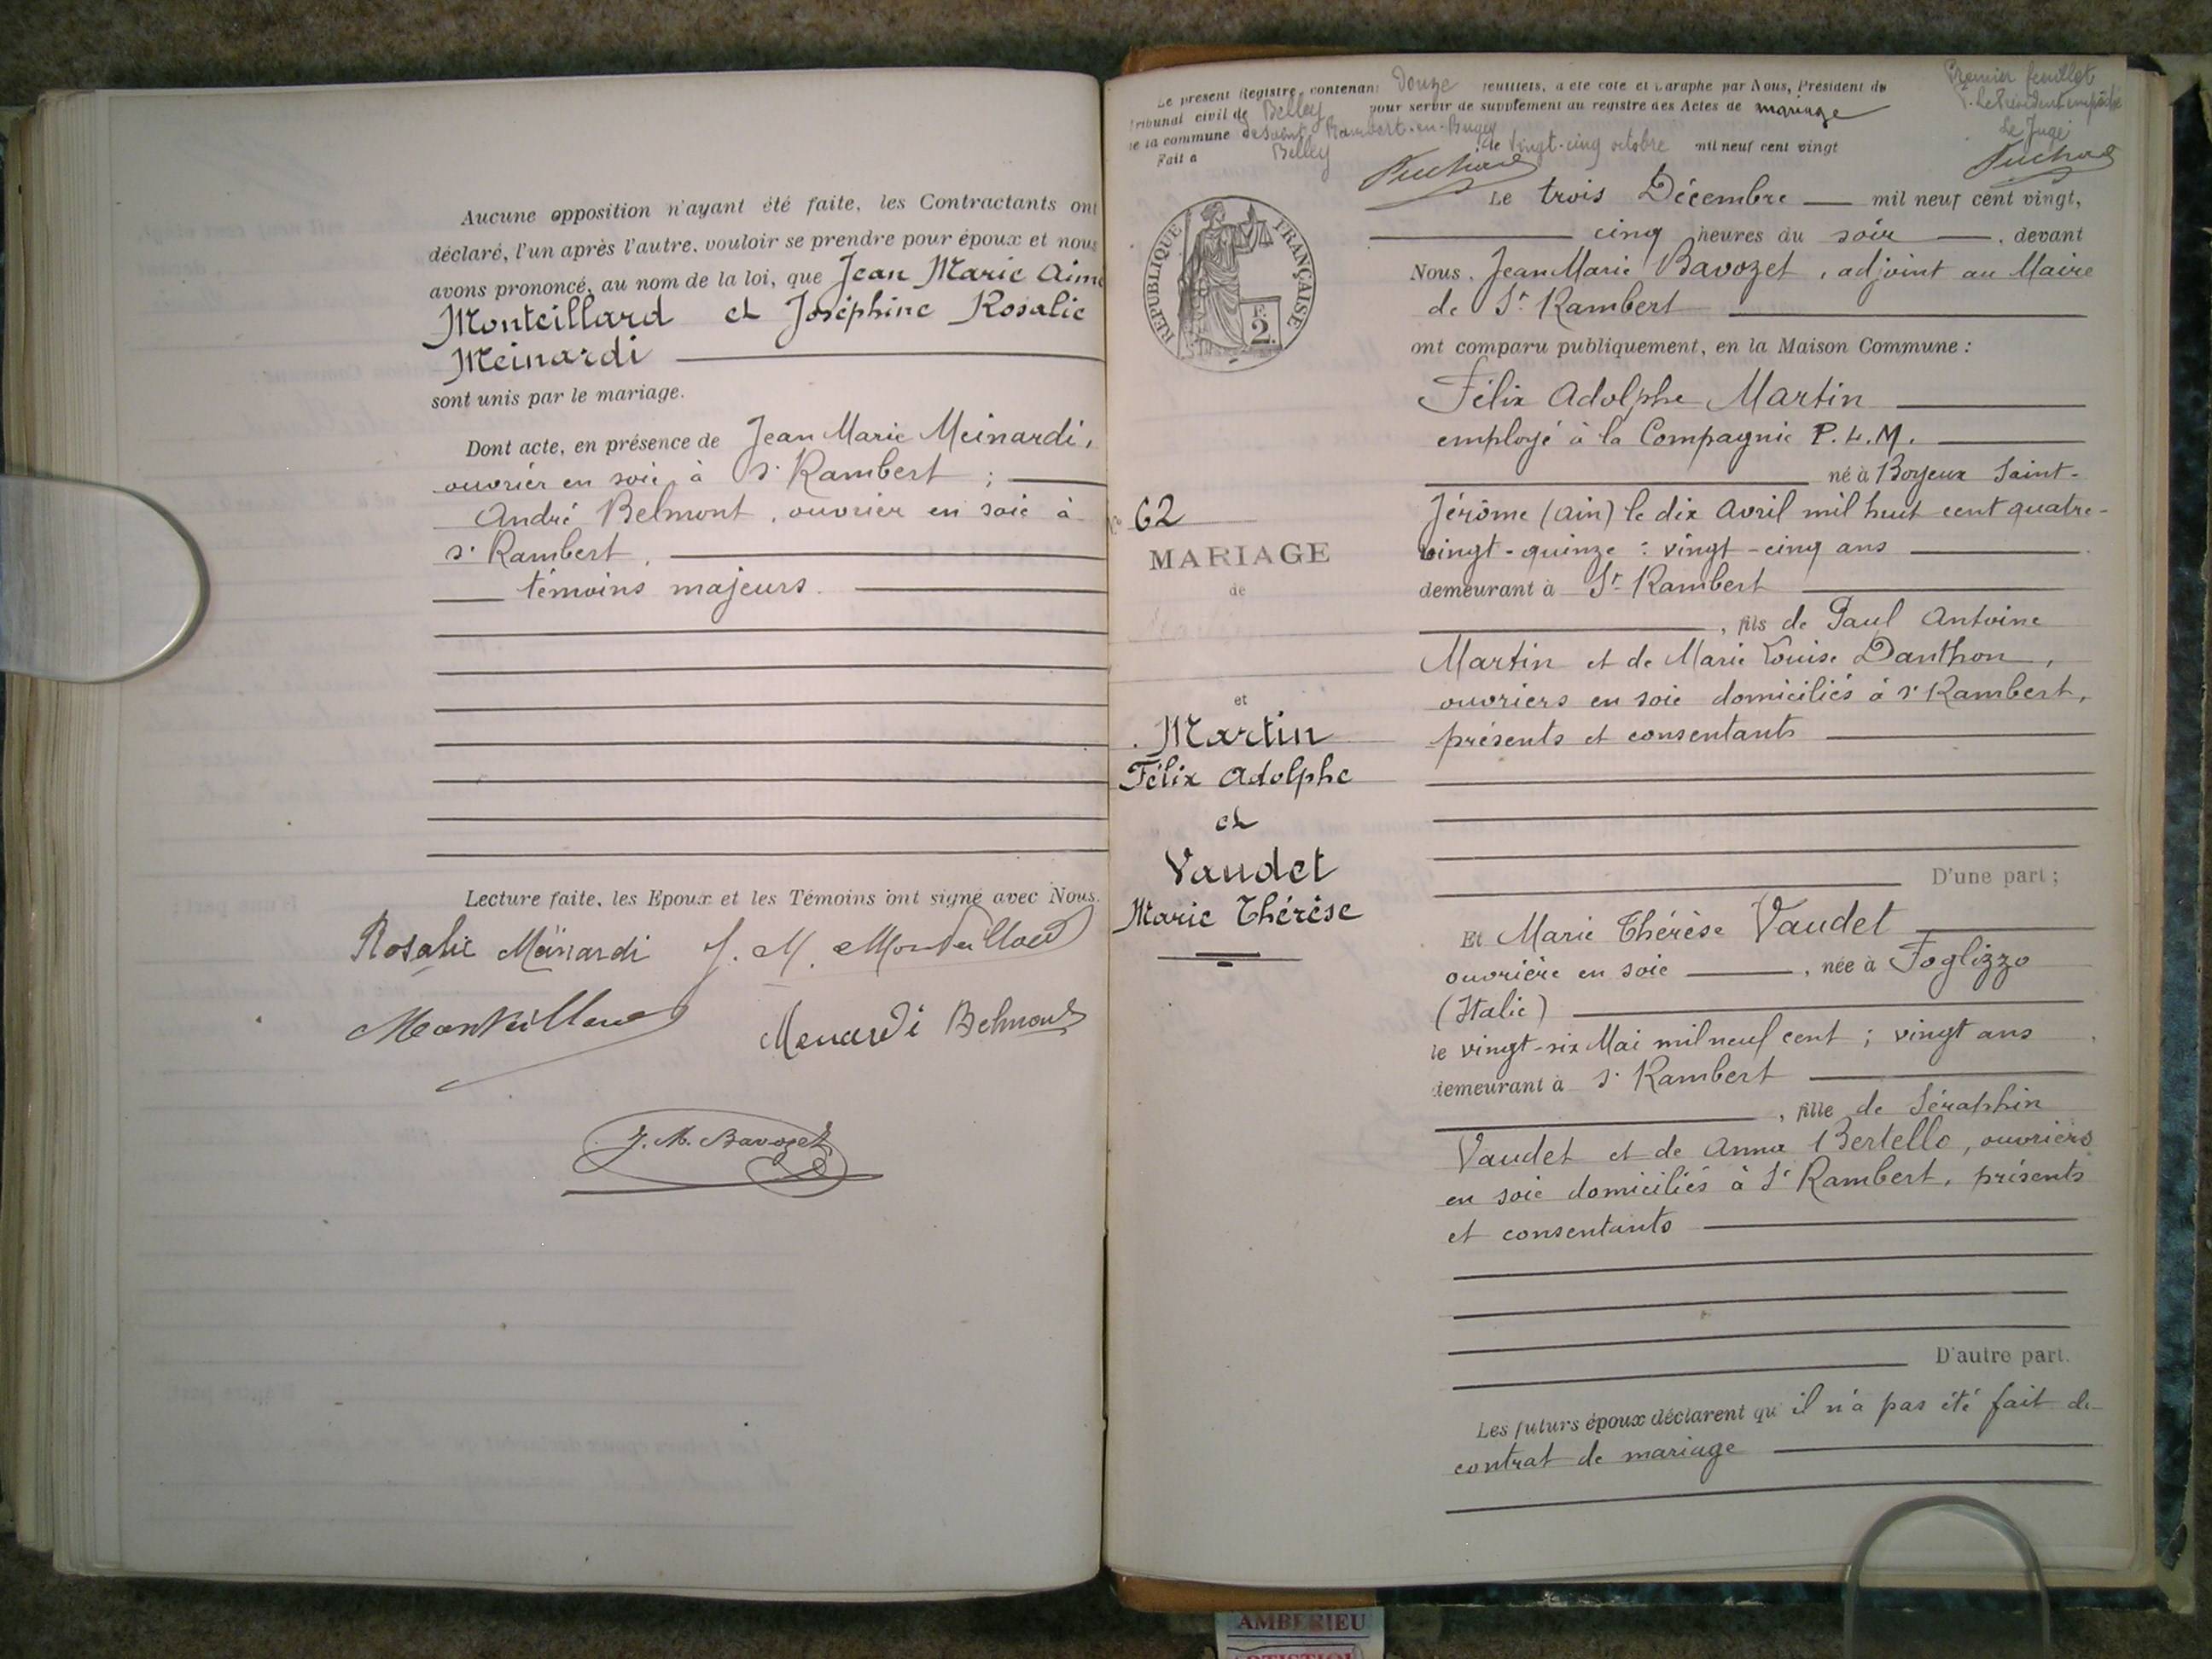 Aucune opposition n'ayant été faite, les Contractants ont
déclaré, l'un après l'autre, vouloir se prendre pour époux et nous
avons prononcé, au nom de la loi, que Jean Marie Aimé
Monteillard et Joséphine Rosalie
Meinardi
sont unis par le mariage.
Dont acte, en présence de Jean Marie Meinardi,
ouvrier en soie à St Rambert ;
André Belmont, ouvrier en soie à
St Rambert.
témoins majeurs.
Lecture faite, les Epoux et les Témoins ont signé avec Nous.
Rosalie Meinardi J. M. Monteillard
Monteillard Menardi Belmont
J. M. Bavozet
Le présent Registre, contenant Douze feuillets, a été coté et paraphé par Nous, Président du
Tribunal civil de Belley pour servir de supplément au registre des Actes de mariage
de la commune de Saint Rambert-en-Bugey
Fait a Belley le vingt-cinq octobre mil neuf cent vingt
Premier feuillet
P. Le Président empêché
Le Juge
RÉPUBLIQUE FRANÇAISE
F.
2.
No 62
MARIAGE
de
et
Martin
Félix Adolphe
et
Vaudet
Marie Thérèse
Le trois Décembre mil neuf cent vingt,
cinq heures du soir, devant
Nous, Jean Marie Bavozet, adjoint au Maire
de St Rambert
ont comparu publiquement, en la Maison Commune :
Félix Adolphe Martin
employé à la Compagnie P. L. M.
né à Boyeux Saint-
Jérôme (Ain) le dix Avril mil huit cent quatre-
vingt-quinze : vingt-cinq ans
demeurant à St Rambert
, fils de Paul Antoine
Martin et de Marie Louise Danthon,
ouvriers en soie domiciliés à St Rambert,
présents et consentants
D'une part ;
Et Marie Thérèse Vaudet
ouvrière en soie, née à Foglizzo
(Italie)
le vingt-six Mai mil neuf cent ; vingt ans
demeurant à St Rambert
, fille de Séraphin
Vaudet et de Anna Bertello, ouvriers
en soie domiciliés à St Rambert, présents
et consentants
D'autre part.
Les futurs époux déclarent qu'il n'a pas été fait de
contrat de mariage
AMBERIEU